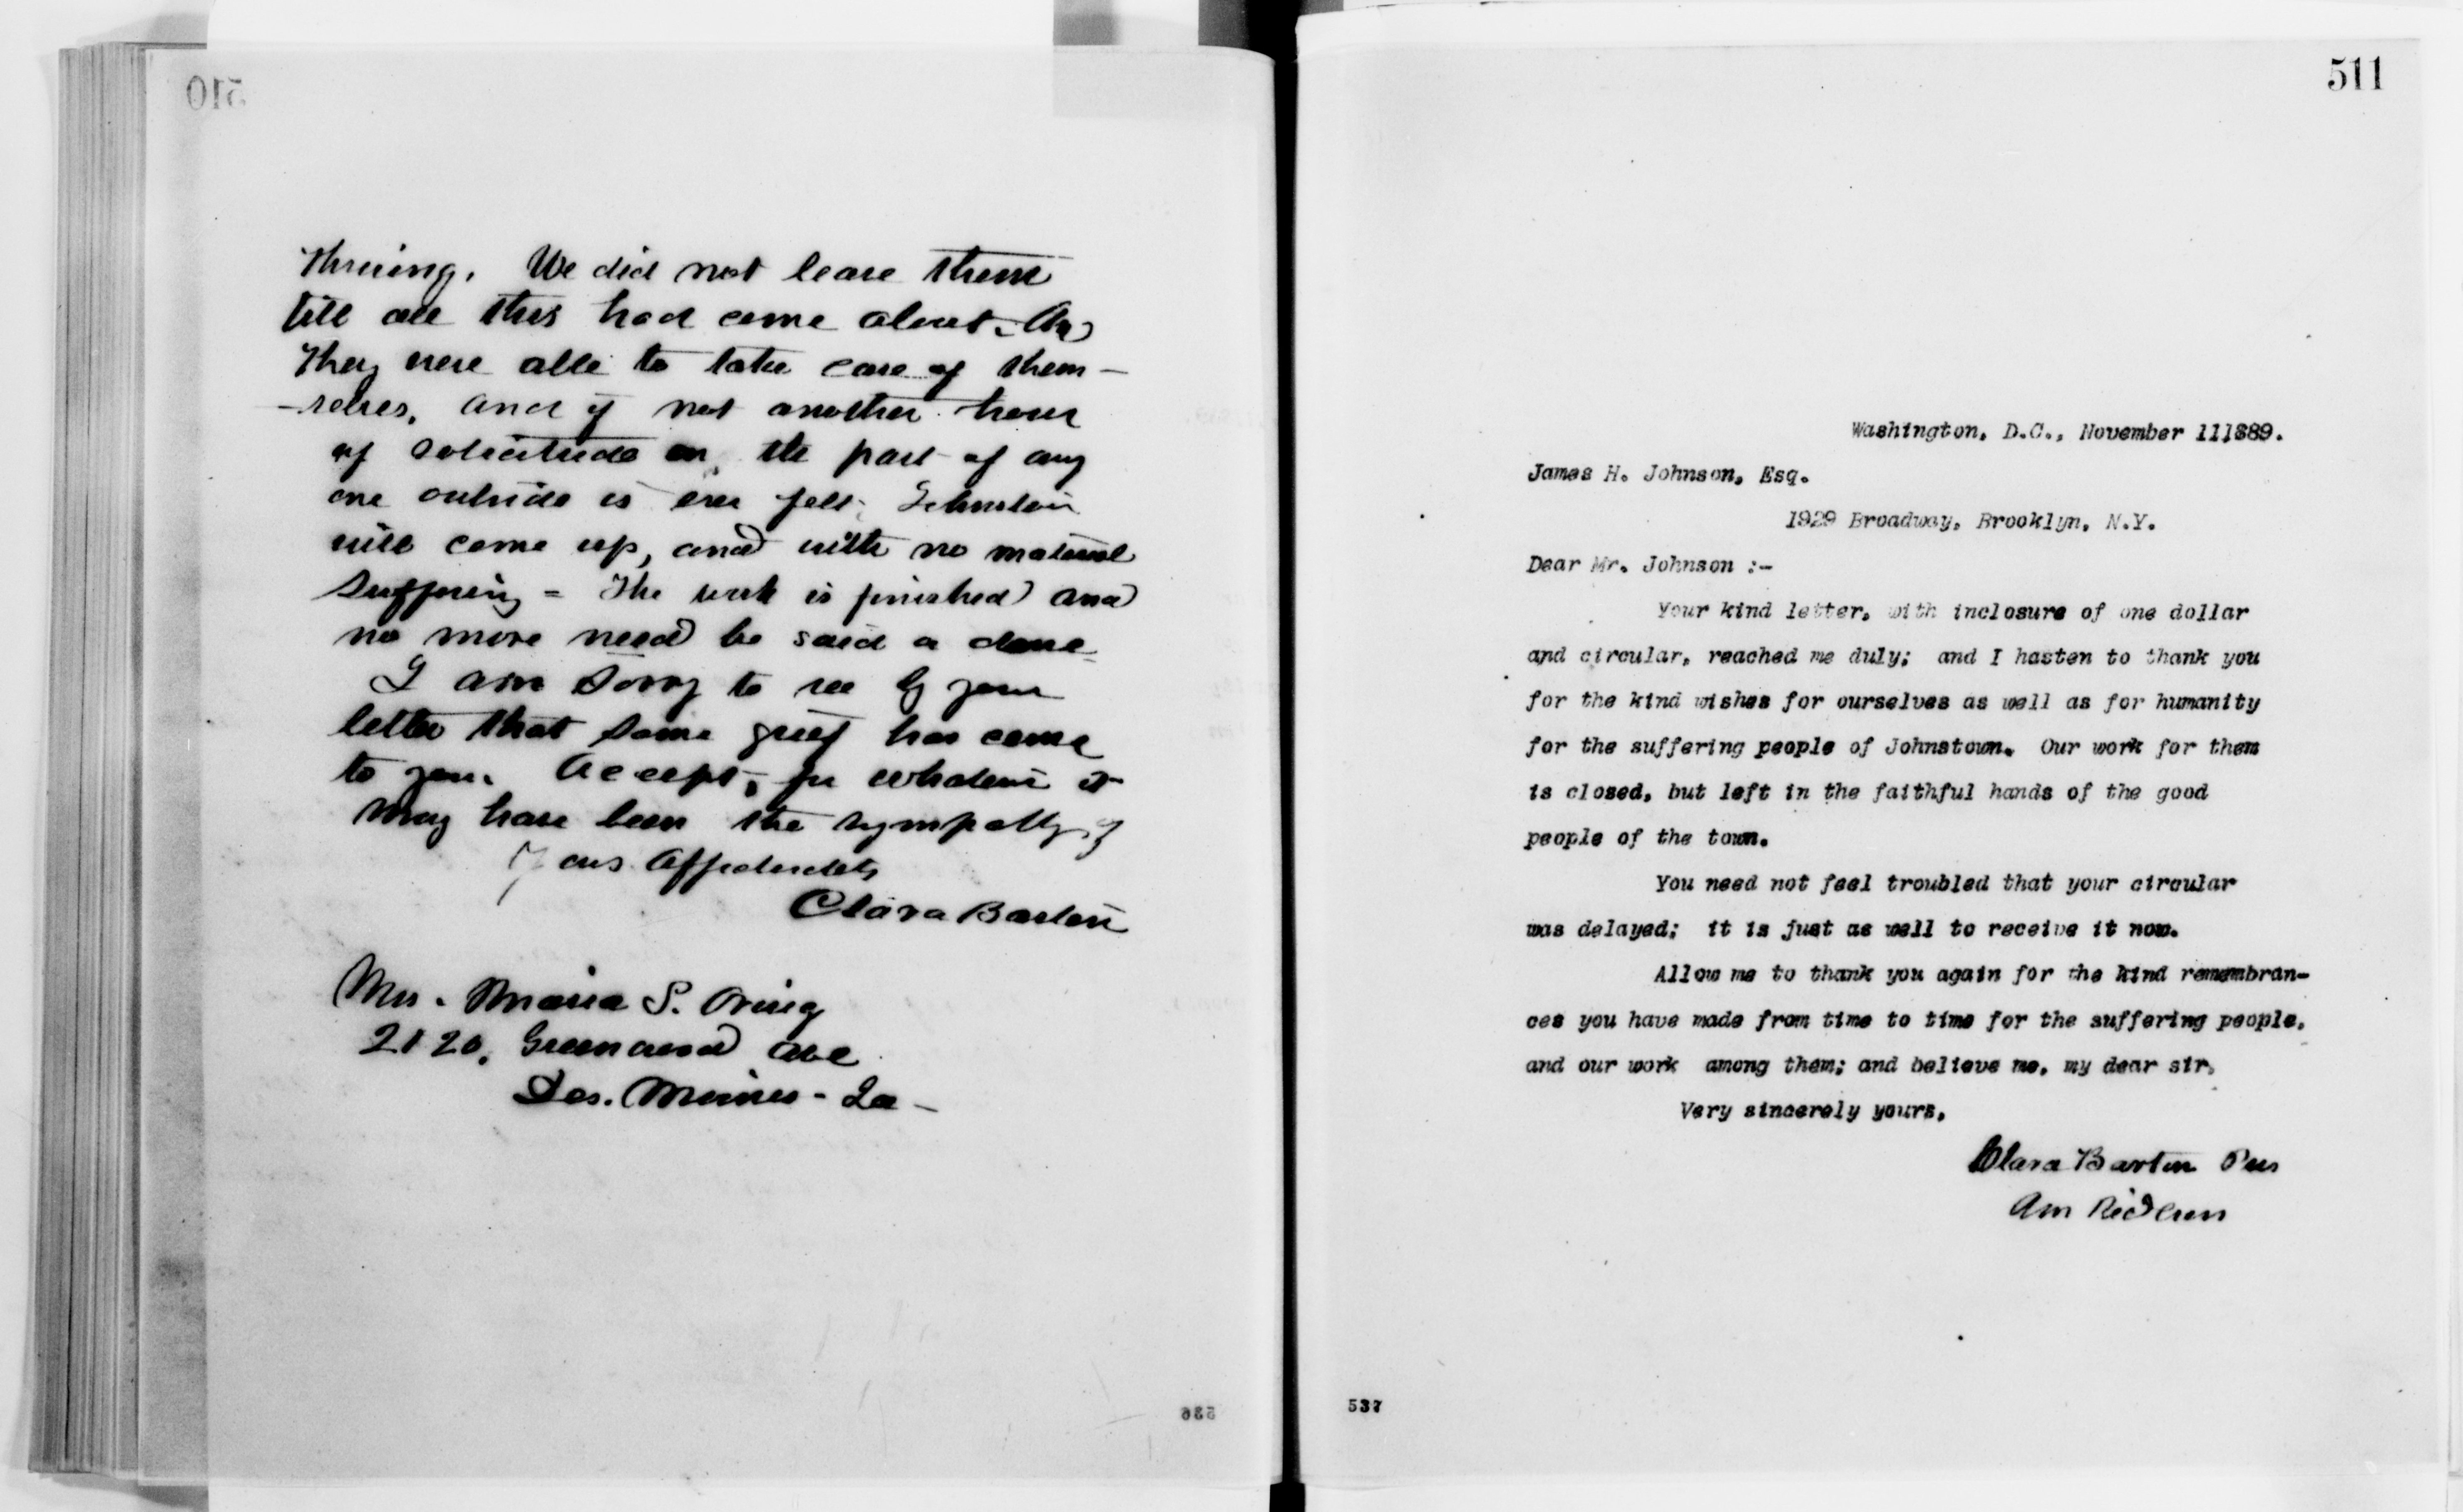 510
thriving. We did not leave them
till all this had come about.
They were able to take care of them-
-selves, and if not another hour
of solicitude on the part of any
one outside is ever felt, Johnstown
will come up, and with no material
suffering - The work is finished and
no more need be said or done
I am sorry to see by your
letter that some grief has come
to you. Accept, for whatever it
may have been the sympathy of
Yours affectionately
Clara Barton
Mrs. Maria S. Orwig
2120, Greenwood Ave
Des. Moines - Ia -
536
511
Washington, D.C., November 111889.
James H. Johnson, Esq.
1929 Broadway, Brooklyn, N.Y.
Dear Mr. Johnson :-
Your kind letter, with inclosure of one dollar
and circular, reached me duly; and I hasten to thank you
for the kind wishes for ourselves as well as for humanity
for the suffering people of Johnstown. Our work for them
is closed, but left in the faithful hands of the good
people of the town.
You need not feel troubled that your circular
was delayed; it is just as well to receive it now.
Allow me to thank you again for the kind remembran-
ces you have made from time to time for the suffering people,
and our work among them; and believe me, my dear sir,
Very sincerely yours,
Clara Barton Pres
Am Red Cross
537